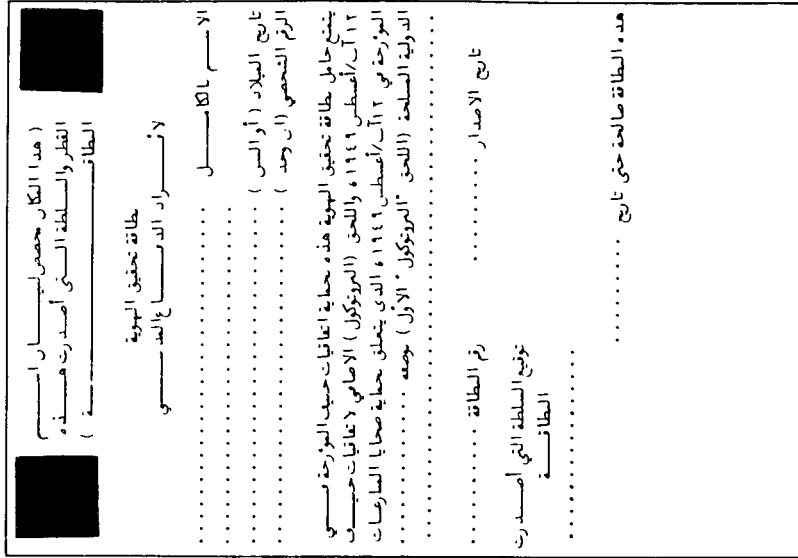 ( هذا المكان مخصص لبيان اسم
القطر والسلطة التي أصدرت هذه
البطاقة )
بطاقة تحقيق الهوية
لأفراد الدفاع المدني
الاسم بالكامل ....................
....................
تاريخ الميلاد ( أو السن ) ....................
الرقم الشخصي (ان وجد ) ....................
يتمتع حامل بطاقة تحقيق الهوية هذه بحماية اتفاقيات جنيف المؤرخة في
١٢ آب/أغسطس ١٩٤٩ ، واللحق (البروتوكول) الاضافي لاتفاقيات جنيف
المؤرخة في ١٢ آب/أغسطس ١٩٤٩ ، الذي يتعلق بحماية ضحايا المنازعات
الدولية المسلحة (اللحق "البروتوكول" الأول) بوصفه ....................
....................
تاريخ الاصدار .......... رقم البطاقة ..........
توقيع السلطة التي أصدرت
البطاقة
....................
هذه البطاقة صالحة حتى تاريخ ..........